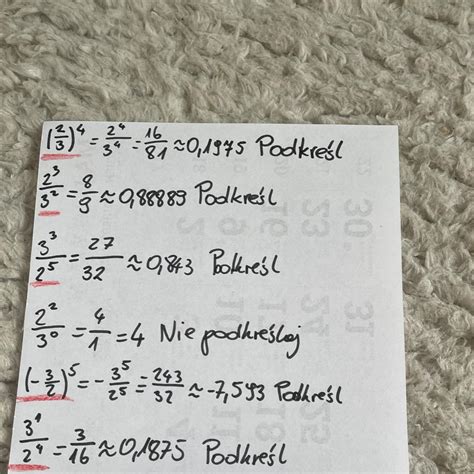 (2/3)^4 = 2^4/3^4 = 16/81 ≈ 0,1975 Podkreśl
2^3/3^2 = 8/9 ≈ 0,88889 Podkreśl
3^3/2^5 = 27/32 ≈ 0,843 Podkreśl
2^2/3^0 = 4/1 = 4 Nie podkreślaj
(-3/2)^5 = -3^5/2^5 = 243/32 ≈ -7,593 Podkreśl
3^1/2^4 = 3/16 ≈ 0,1875 Podkreśl